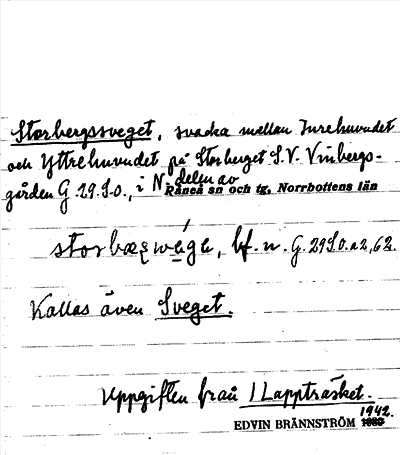 Storbergssveget, svacka mellan Inrehuvudet
och Yttrehuvudet på Storberget S.V. Vinbergs-
gården G 29 S.o., i N. delen av
Råneå sn och tg, Norrbottens län
bf. n. G. 29 S.o. a 2, 62.
Kallas även Sveget.
Uppgiften från 1 Lappträsket.
1942.
EDVIN BRÄNNSTRÖM